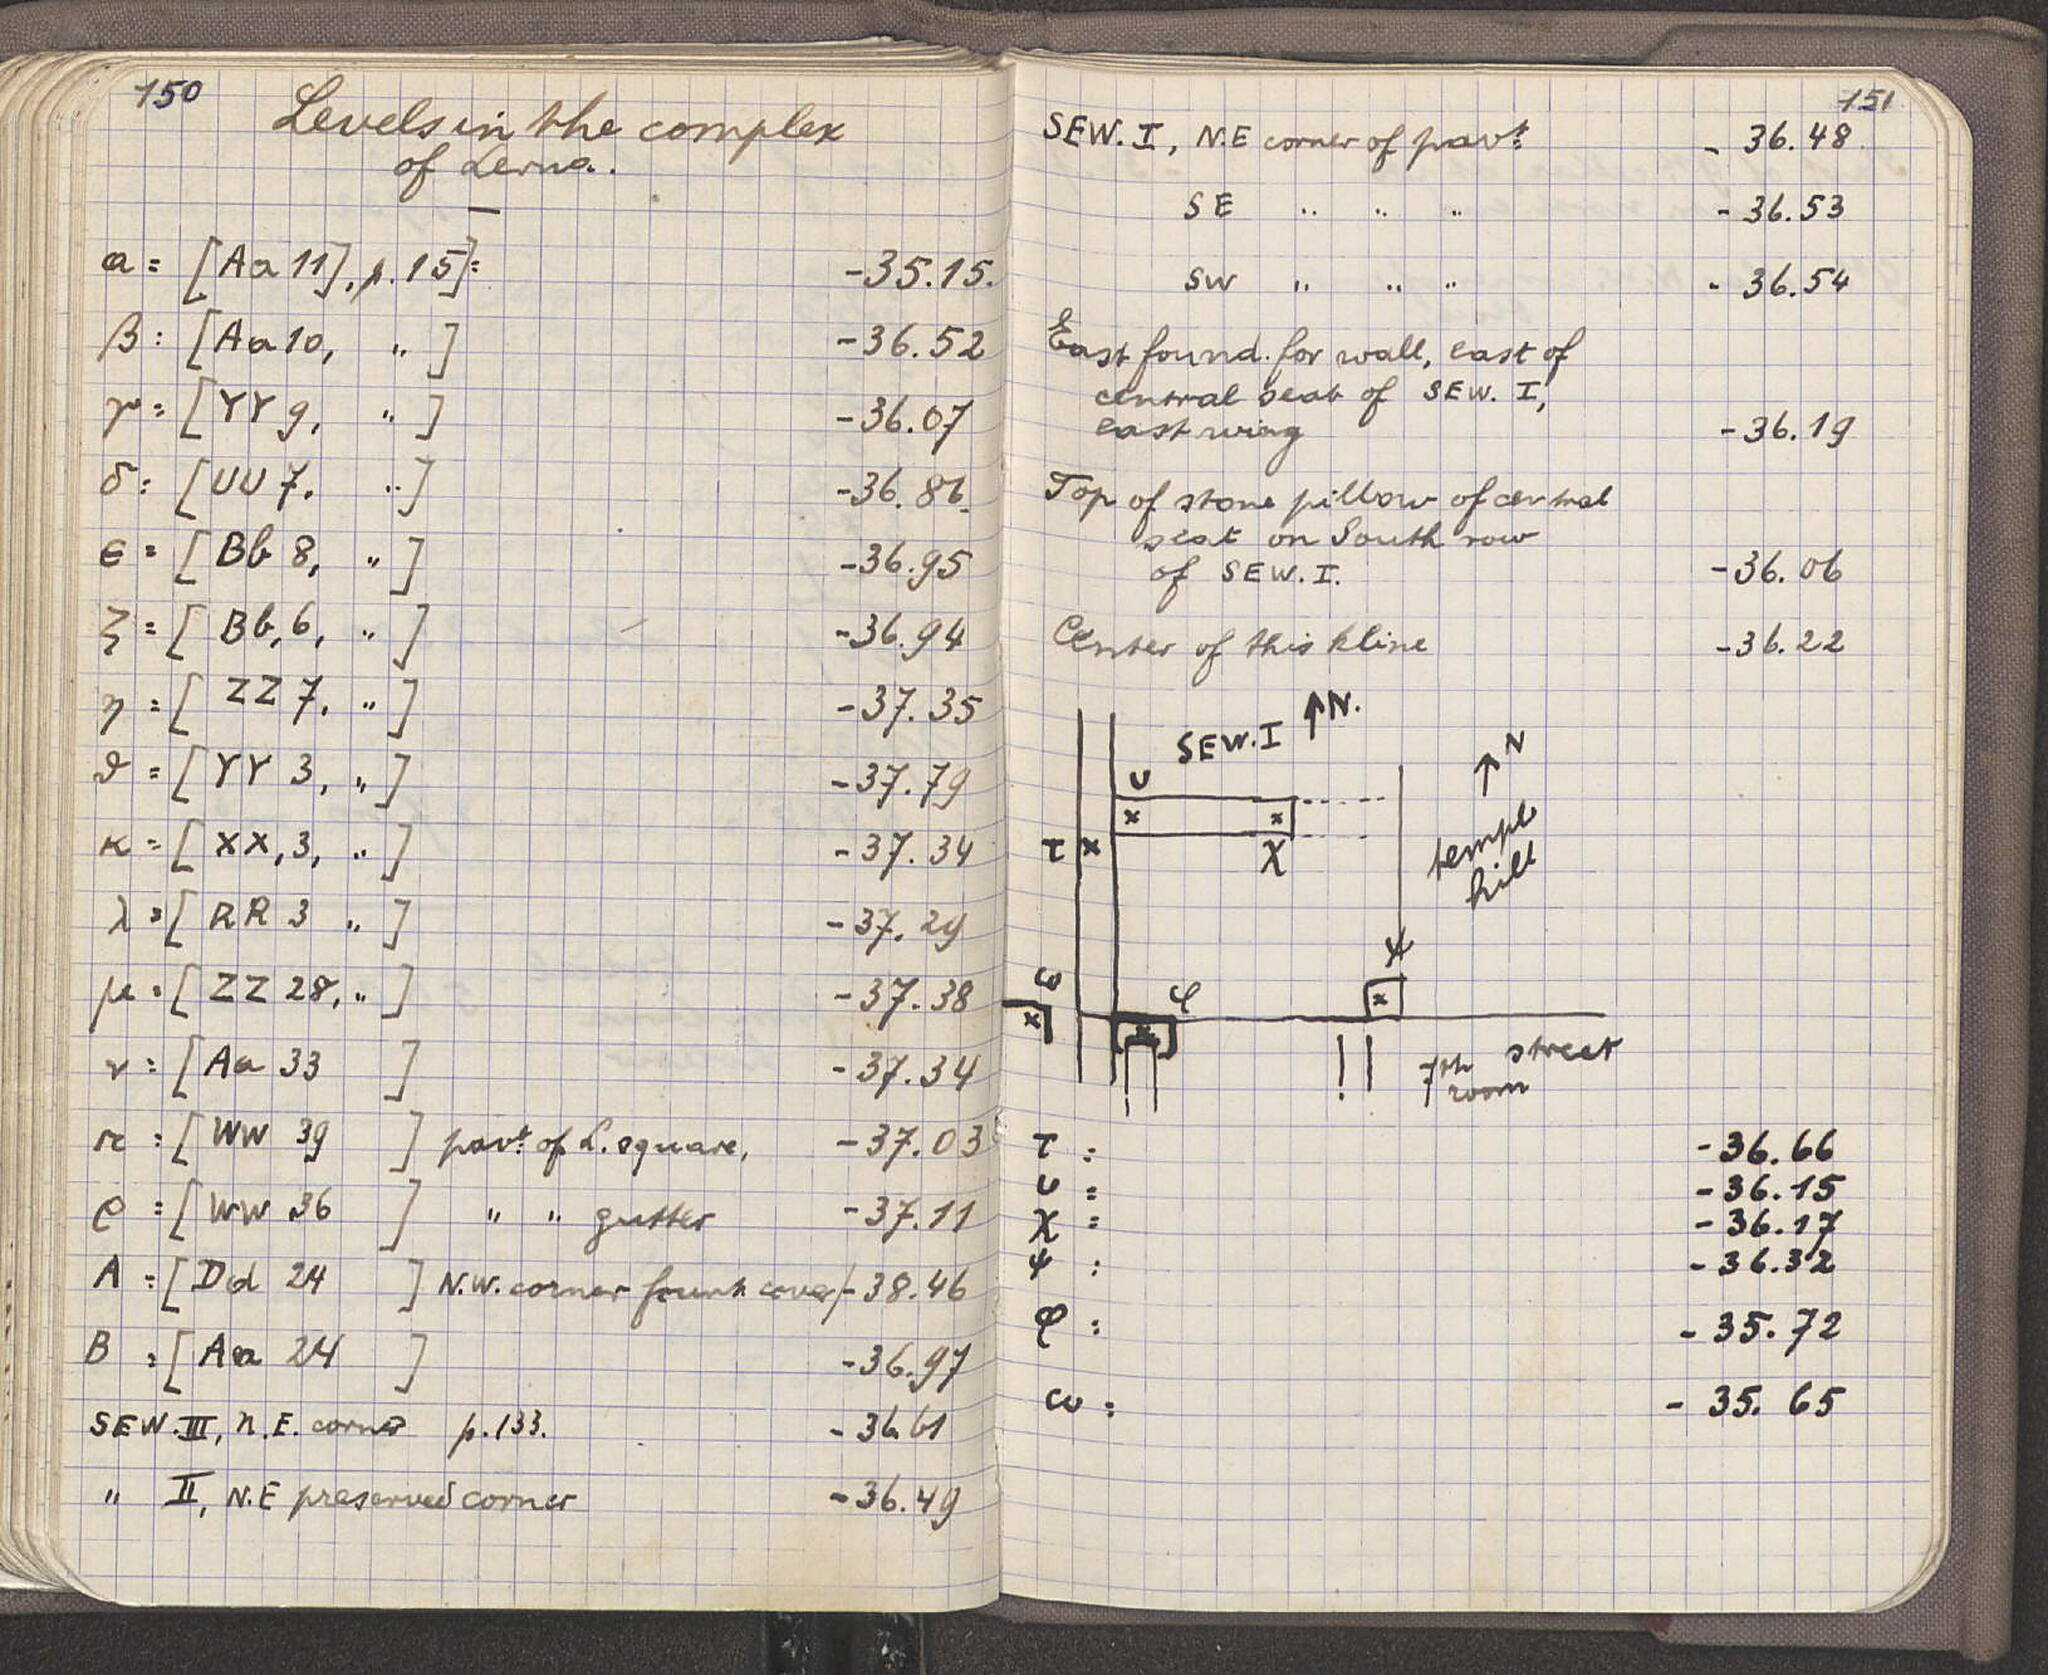 150
Levels in the complex
of Lerna.
α = [Aa 11], p. 15]: -35.15.
β : [Aa 10, " ] -36.52
γ = [YY 9, " ] -36.07
δ : [UU 7, " ] -36.86.
ε = [Bb 8, " ] -36.95
ζ = [Bb, 6, " ] -36.94
η = [ZZ 7, " ] -37.35
ϑ = [YY 3, " ] -37.79
κ = [XX, 3, " ] -37.34
λ = [RR 3 " ] -37.29
μ = [ZZ 28, " ] -37.38
ν = [Aa 33 ] -37.34
π : [WW 39 ] pavt. of L. square, -37.03
ρ = [WW 36 ] " " gutter -37.11
A = [Dd 24 ] N.W. corner fount. cover -38.46
B = [Aa 24 ] -36.97
SEW. III, N.E. corner p. 133. -36.61
" II, N.E preserved corner -36.49
151
SEW. I, N.E corner of pavt. - 36.48
SE " " " - 36.53
SW " " " - 36.54
East found. for wall, east of
central seat of SEW. I,
east wing -36.19
Top of stone pillow of central
seat on South row
of SEW. I. -36.06
Center of this kline -36.22
SEW. I N.
N
υ
τ χ
temple
hill
ψ
ω φ
7th street
room
τ : -36.66
υ = -36.15
χ = -36.17
ψ : -36.32
φ : - 35.72
ω : - 35.65